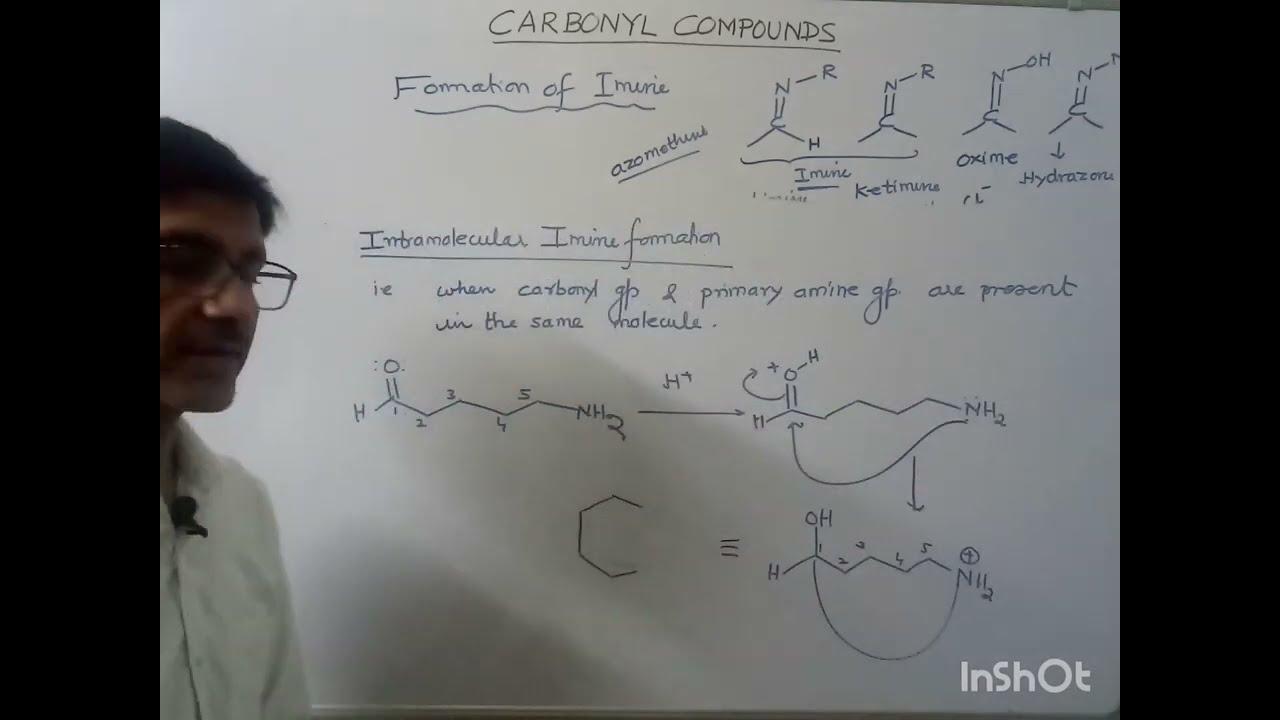 CARBONYL COMPOUNDS
Formation of Imine
azomethine
N R
C H
N R
C
N OH
C
N N
C
Imine
Ketimine
Oxime
Hydrazone
Intramolecular Imine formation
ie when carbonyl gp & primary amine gp. are present
in the same molecule.
:O:
H 1 2 3 4 5 NH2
H+
+ O H
H NH2
≡
OH
H 1 2 3 4 5 ⊕ NH2
InShOt